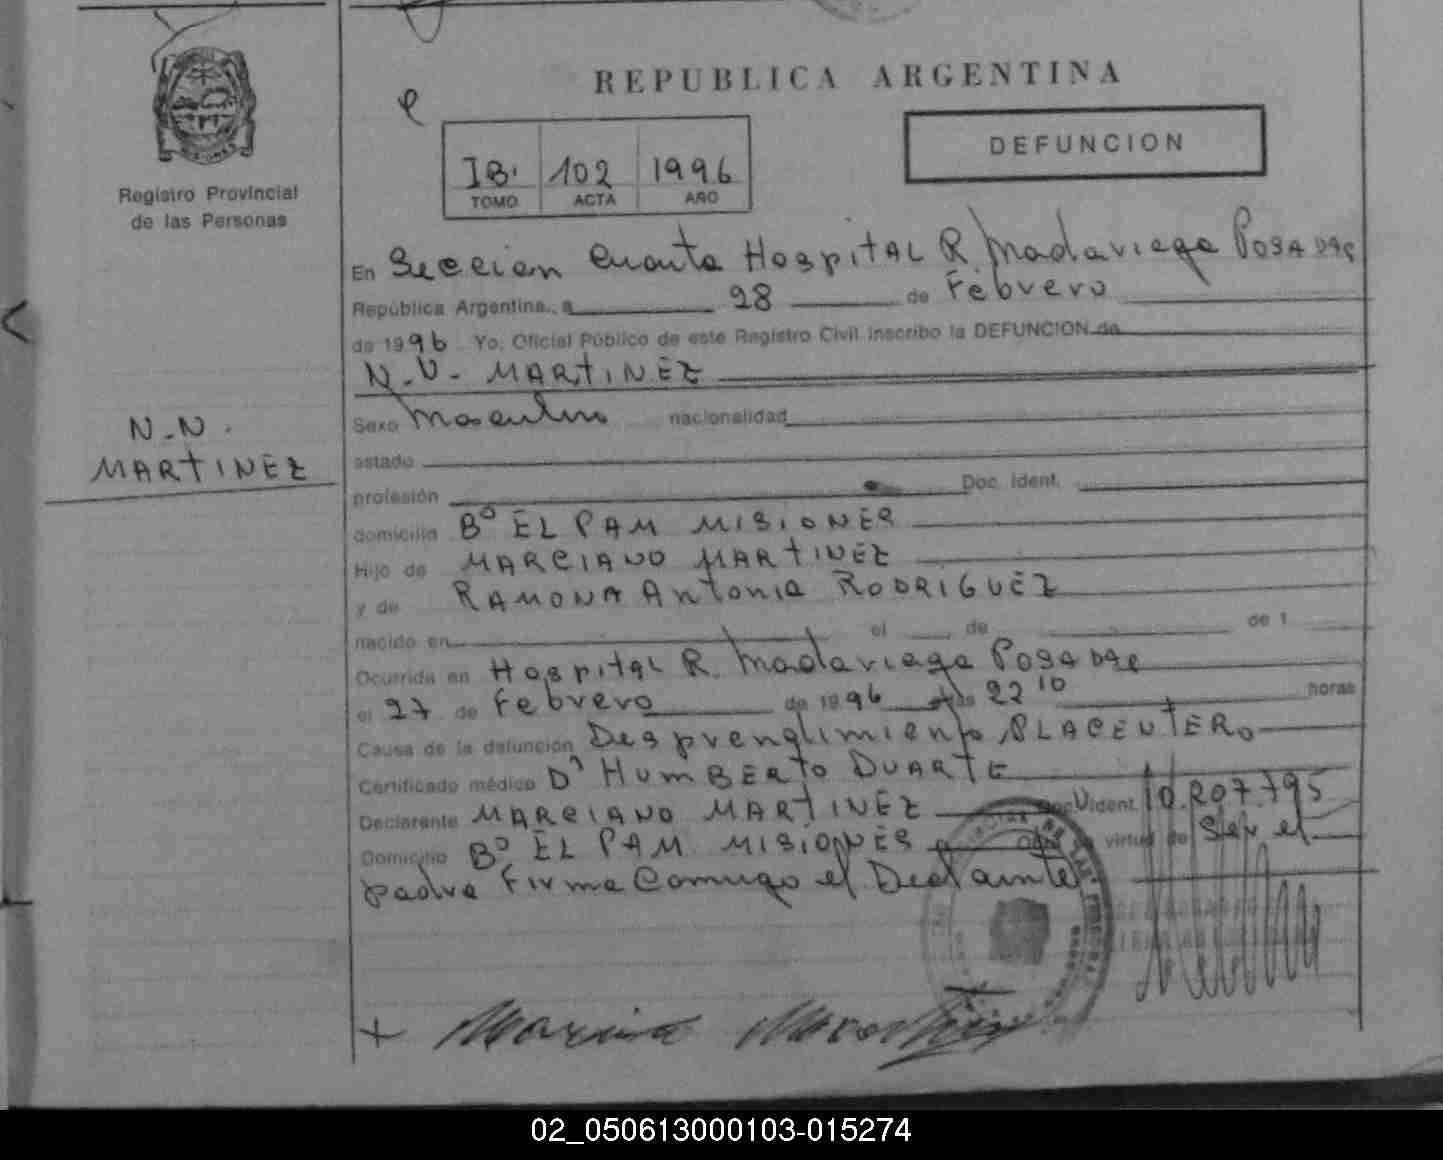 REPUBLICA ARGENTINA
DEFUNCION
IB. 102 1996
TOMO ACTA AÑO
Registro Provincial
de las Personas
N.N.
MARTINEZ
En Seccion Cuarta Hospital R Madariaga Posadas
República Argentina, a 28 de Febrero
de 1996 Yo, Oficial Público de este Registro Civil inscribo la DEFUNCION de
N.N. MARTINEZ
Sexo Masculino nacionalidad
estado
profesión Doc. Ident.
domicilio Bº EL PAM MISIONES
Hijo de MARCIANO MARTINEZ
y de RAMONA Antonia RODRIGUEZ
nacido en el de de 1
Ocurrida en Hospital R. Madariaga Posadas
el 27 de Febrero de 1996 a las 22 10 horas
Causa de la defunción Desprendimiento PLACENTERO
Certificado médico Dr HUMBERTO DUARTE
Declarante MARCIANO MARTINEZ Doc. Ident. 10.207.795
Domicilio Bº EL PAM MISIONES virtud de Ser el
padre Firma Comigo el Declarante
02_050613000103-015274